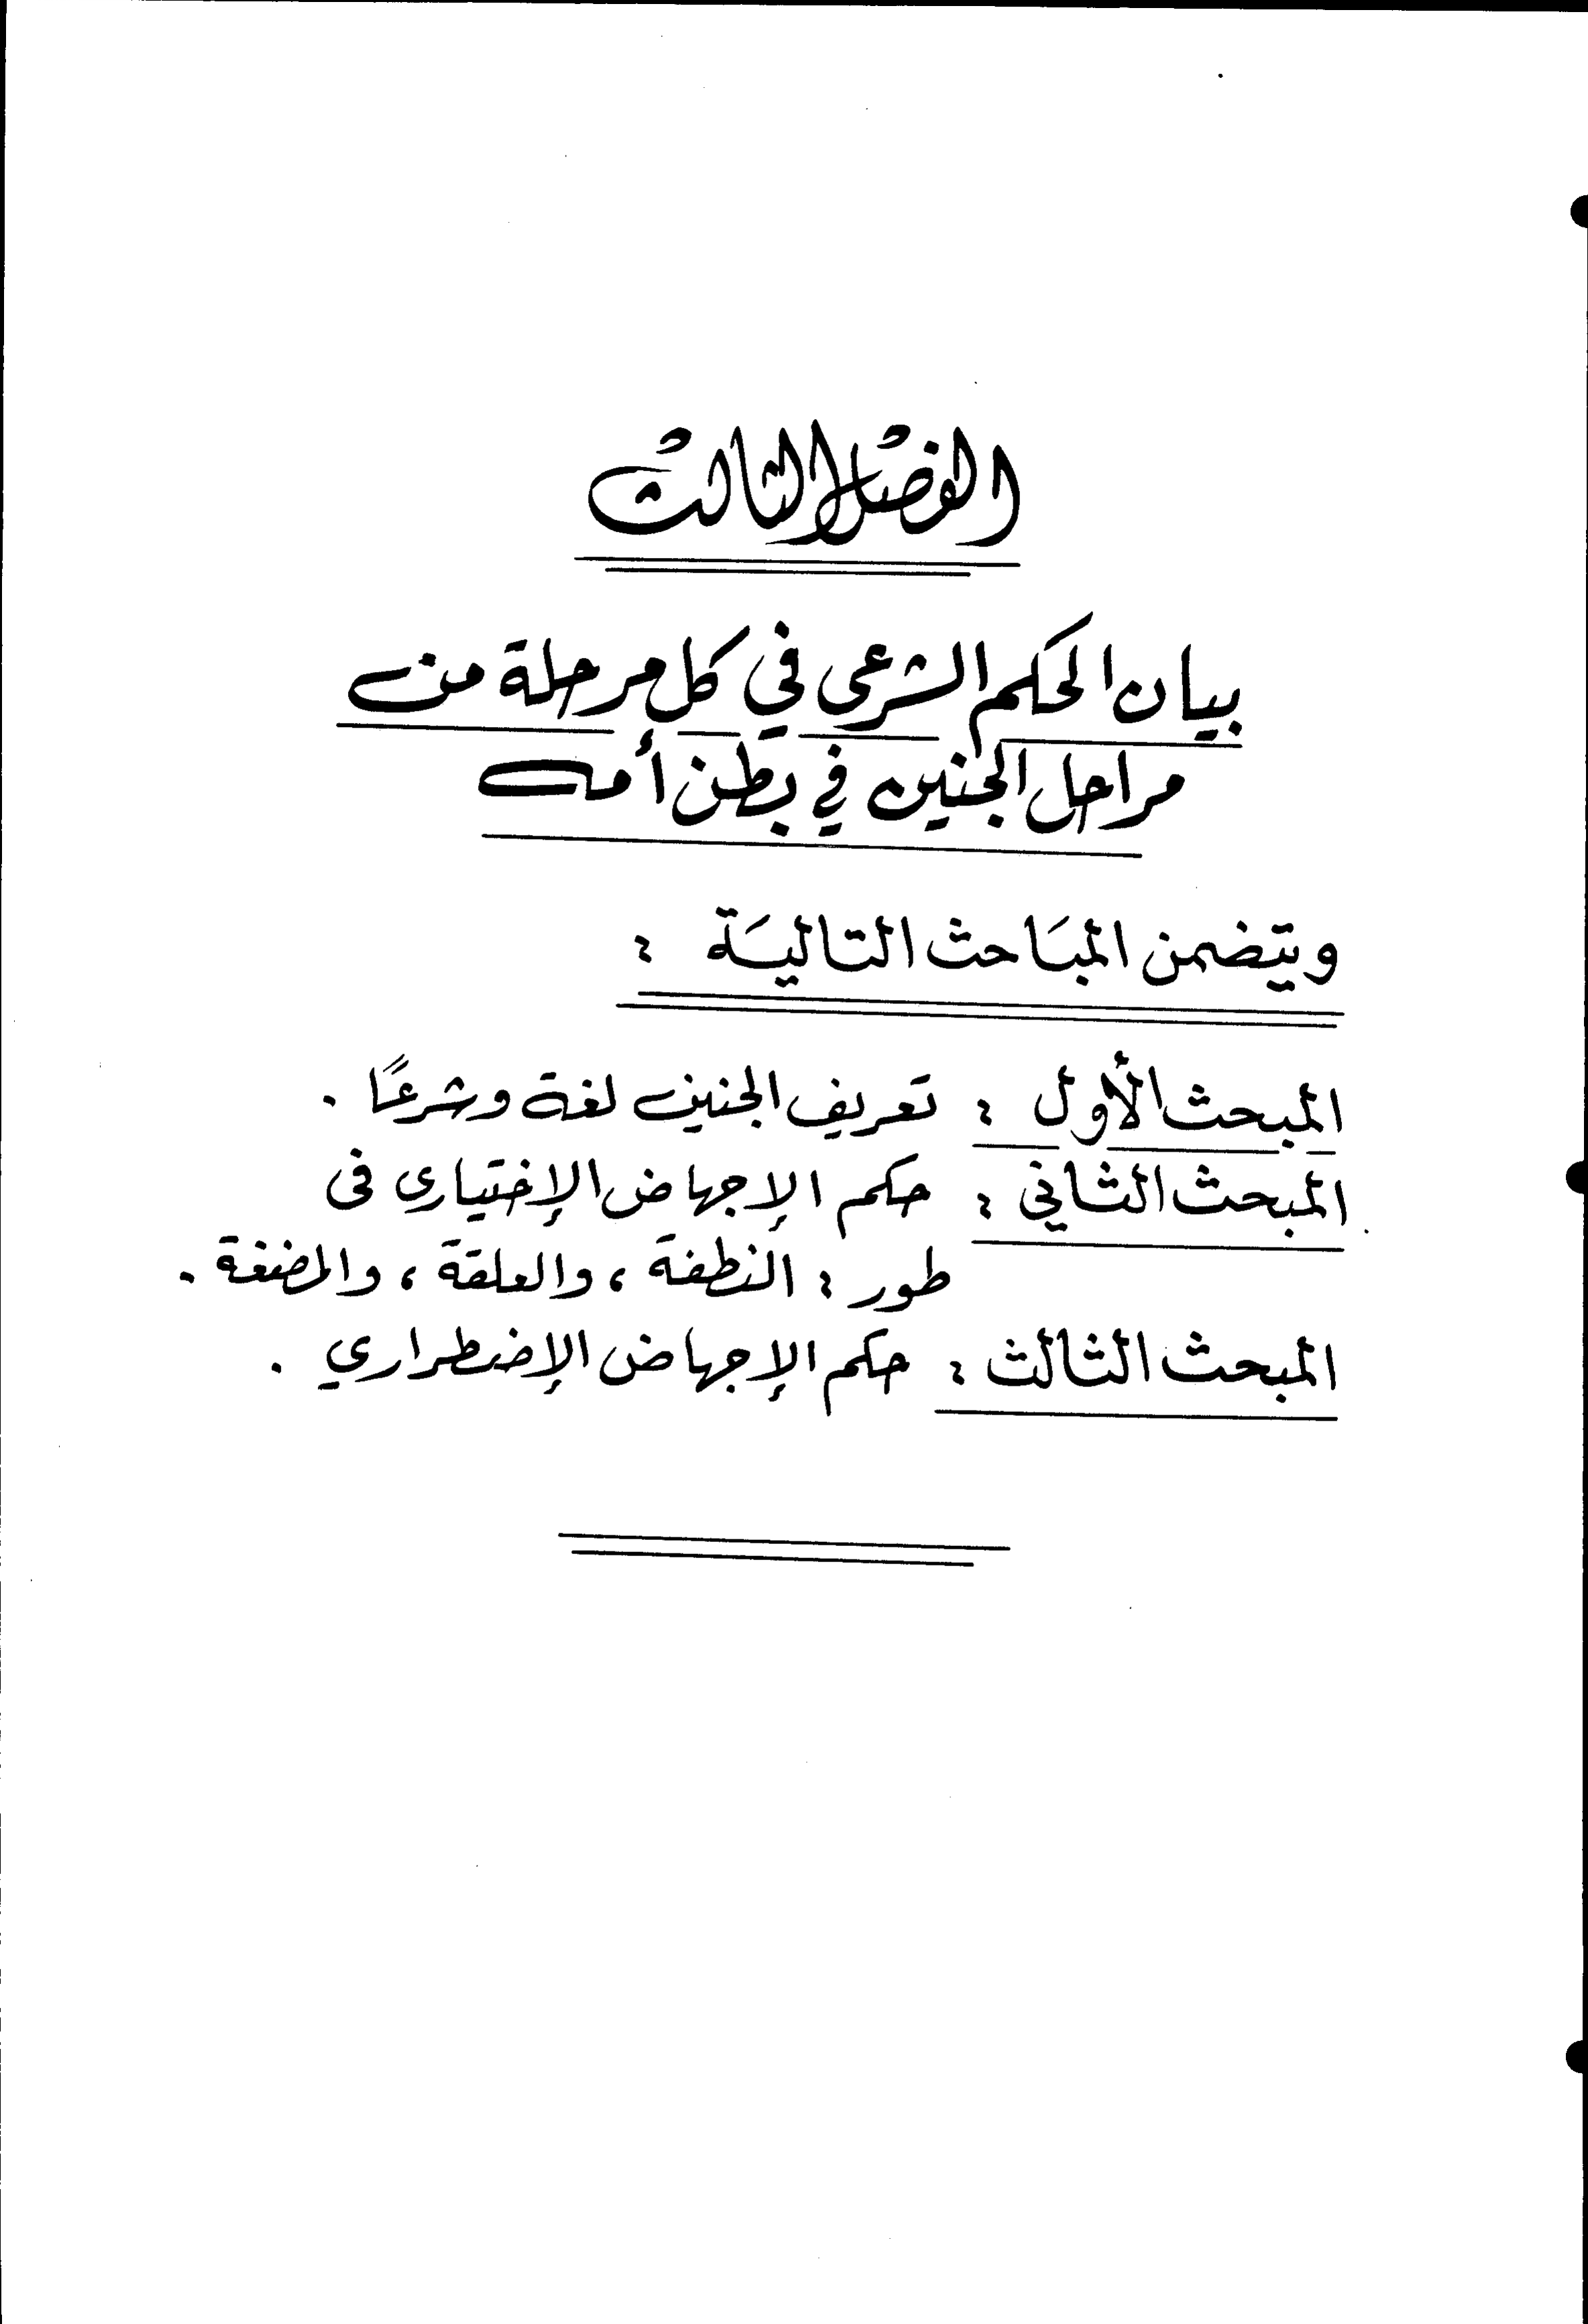 الفصل الثالث
بيان الحكم الشرعى في كل مرحلة من
مراحل الجنين في بطن أمه
ويتضمن المبَاحث التاليَة :
المبحث الأول : تعريف الجنين لغة وشرعًا .
المبحث الثاني : حكم الإجهاض الإختيارى فى
طور : النطفة ، والعلقة ، والمضغة .
المبحث الثالث : حكم الإجهاض الإضطراري .